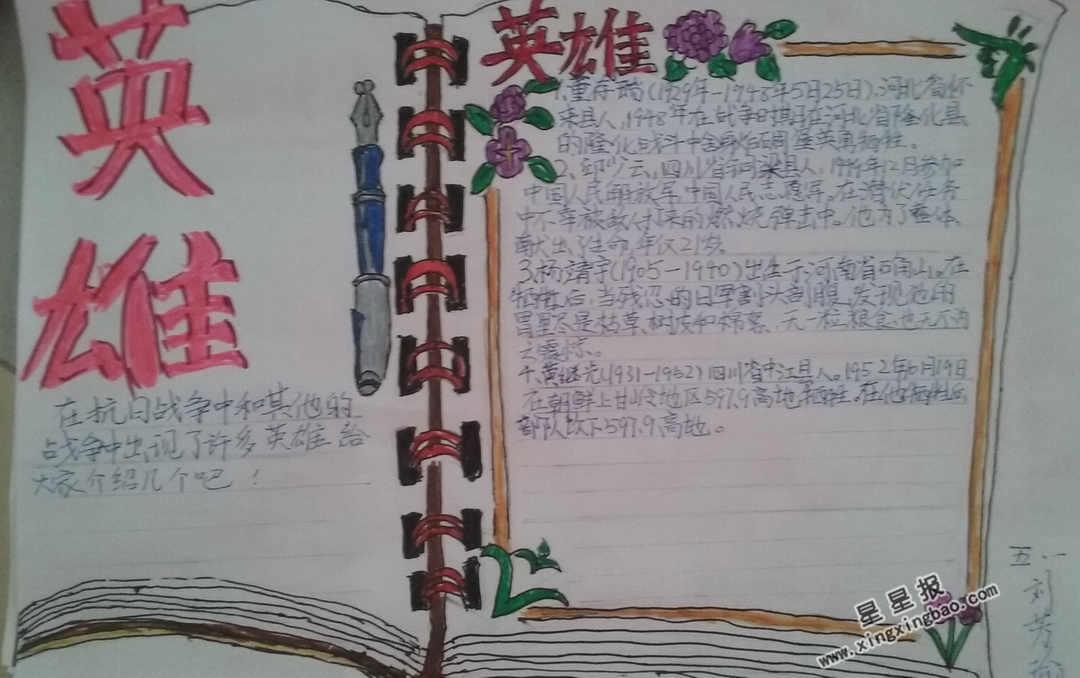 英
雄
在抗日战争中和其他的
战争中出现了许多英雄给
大家介绍几个吧！
英雄
1、董存瑞(1929年-1948年5月25日)河北省怀
来县人，1948年在战争时期在河北省隆化县
的隆化战斗中舍身炸碉堡英勇牺牲。
2、邱少云，四川省铜梁县人，1949年12月参加
中国人民解放军，中国人民志愿军，在潜伏任务
中不幸被敌人打来的燃烧弹击中。他为了整体，
献出了生命，年仅21岁。
3、杨靖宇(1905-1940)出生于河南省确山。在
牺牲后，当残忍的日军割头剖腹，发现他的
胃里尽是枯草、树皮和棉絮，无一粒粮食，也无不为
之震惊。
4、黄继光(1931-1952)四川省中江县人。1952年10月19日
在朝鲜上甘岭地区597.9高地牺牲。在他牺牲后，
部队攻下597.9高地。
五.一
刘芳
星星报
www.xingxingbao.com